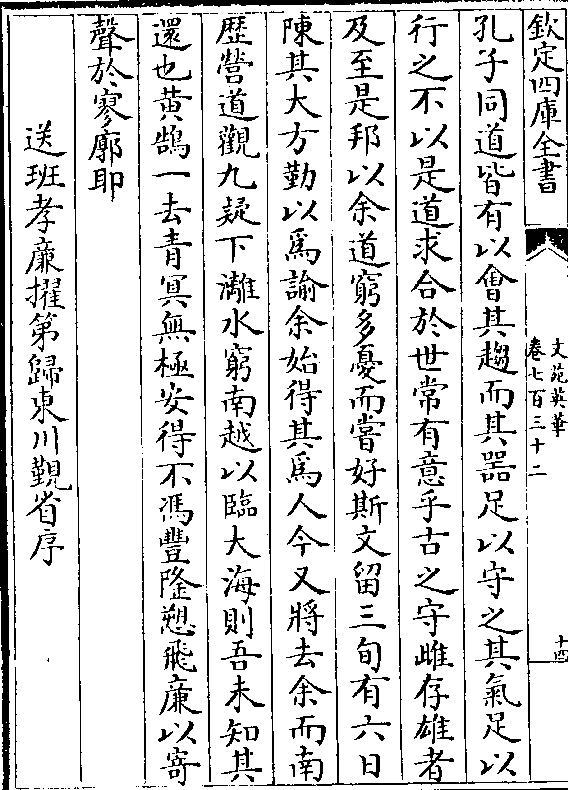 欽定四庫全書
文苑英華
卷七百三十二
十四
孔子同道皆有以㑹其趨而其器足以守之其氣足以
行之不以是道求合於世常有意乎古之守雌存雄者
及至是邦以余道窮多憂而嘗好斯文留三旬有六日
陳其大方勤以為諭余始得其為人今又將去余而南
歴營道觀九疑下灕水窮南越以臨大海則吾未知其
還也黄鵠一去青冥無極安得不馮豐隆愬飛廉以寄
聲於寥廓耶
送班孝廉擢第歸東川覲省序